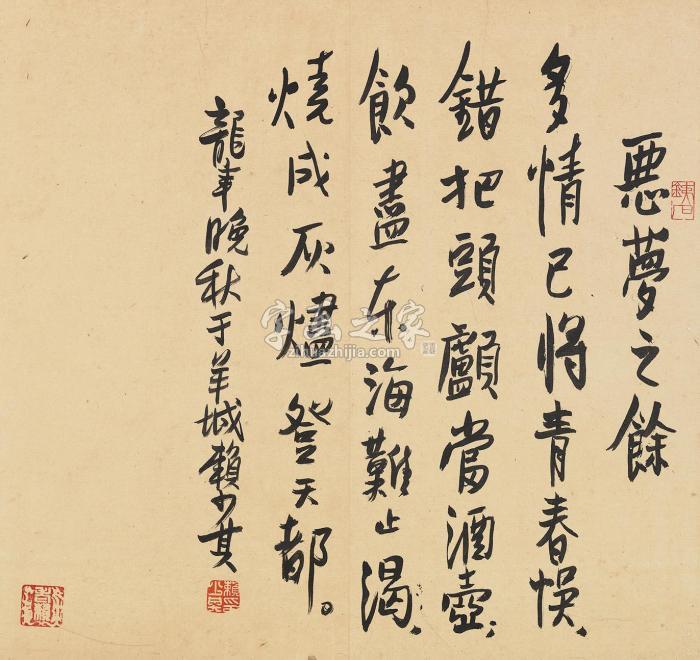 惡夢之餘
多情已將青春悞，
錯把頭顱當酒壺；
飲盡東海難止渴，
燒成灰燼登天都。
龍年晚秋于羊城賴少其
字画之家
zihuazhijia.com